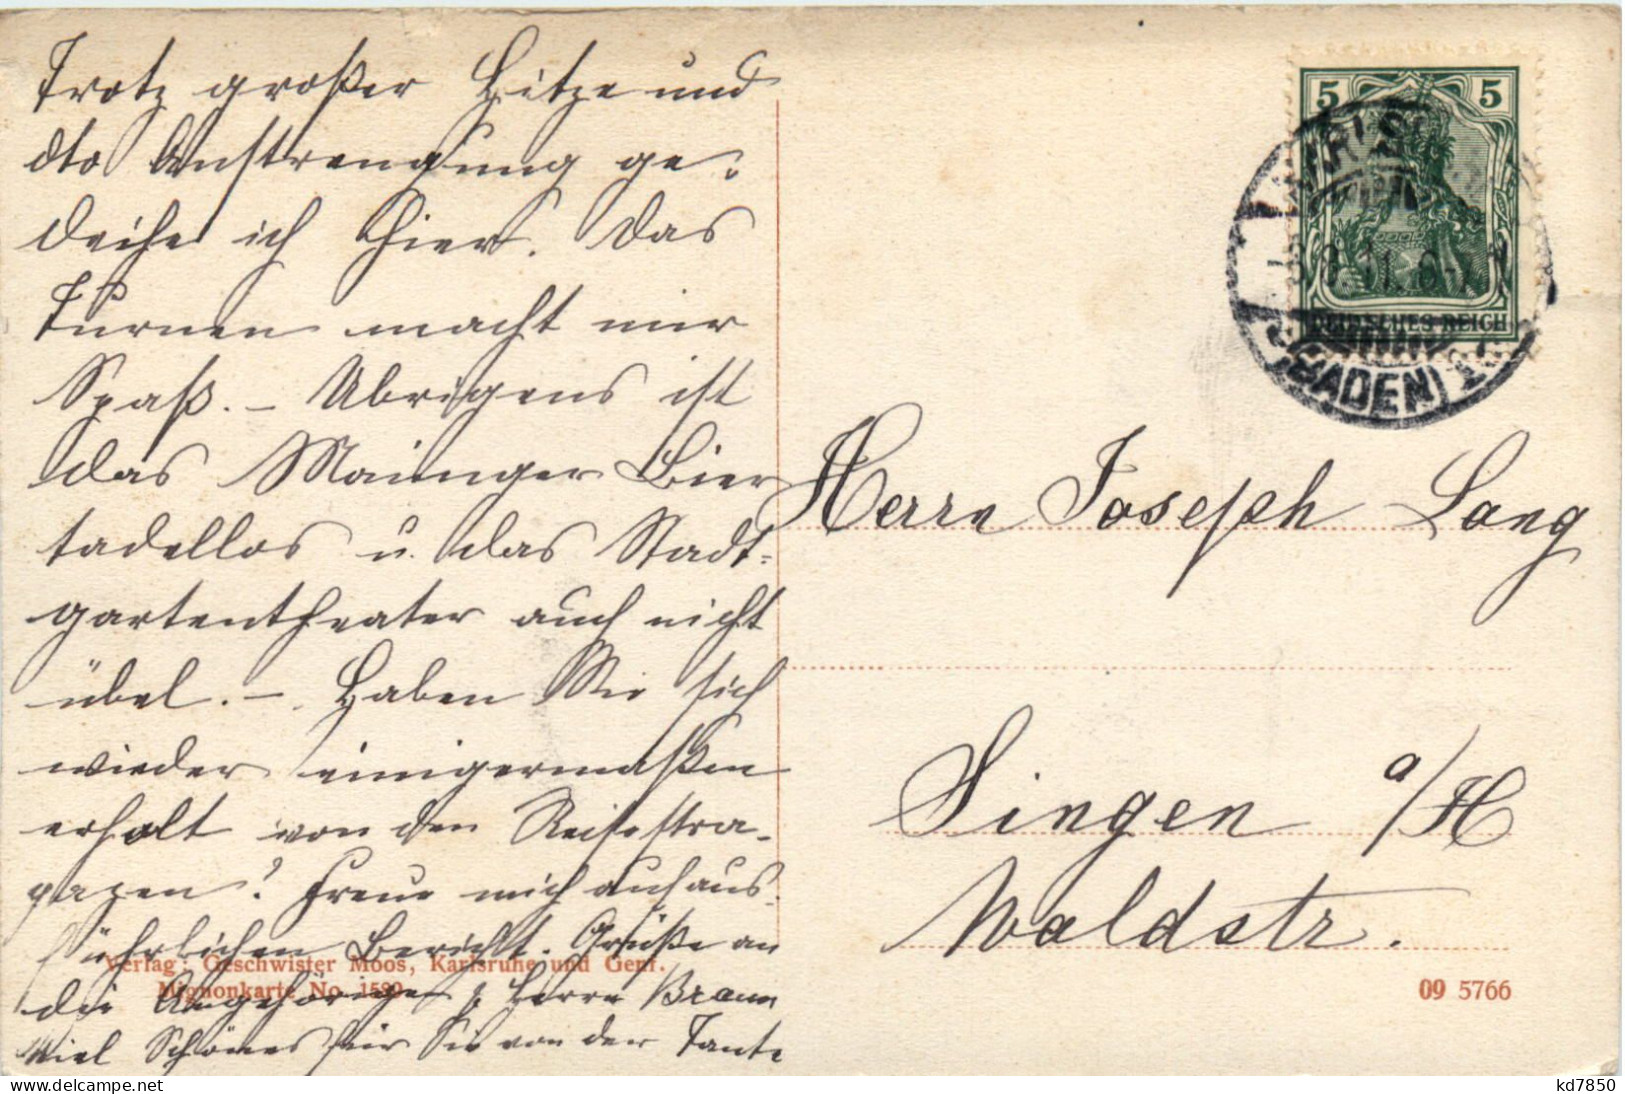 Trotz großer Hitze und
dto Anstrengung ge-
deihe ich hier. Das
Turnen macht mir
Spaß. – Übrigens ist
das Maininger Bier
tadellos u. das Stadt-
gartentheater auch nicht
übel. – Haben Sie sich
wieder einigermaßen
erholt von den Reisestra-
pazen? Freue mich auf aus-
führlichen Bericht. Grüße an
die Angehörige & Herrn Braun
Viel Schönes für Sie von der Tante
Verlag: Geschwister Moos, Karlsruhe und Genf.
Mignonkarte No. 1580
5 5
DEUTSCHES REICH
(BADEN)
Herrn Joseph Lang
Singen a/H
Waldstr.
09 5766
kd7850